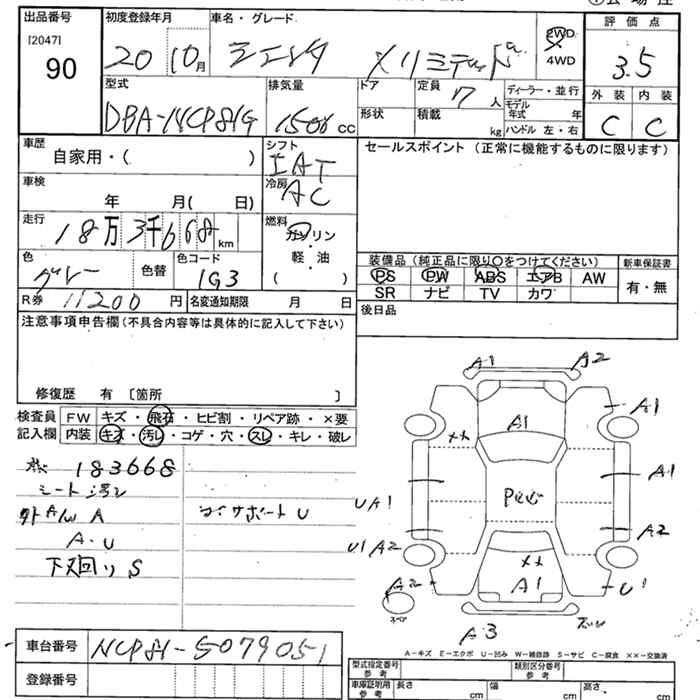 出品番号
[2047]
90
初度登録年月
20 10月
車名・グレード
シエンタ
Xリミテッド
2WD
4WD
評価点
3.5
外装 内装
C C
型式
DBA-NCP81G
排気量
1500 CC
ドア
形状
定員 7 人
積載 kg
ディーラー・並行
モデル年式 年
ハンドル 左・右
車歴
自家用・( )
シフト
IAT
冷房
AC
セールスポイント (正常に機能するものに限ります)
車検
年 月( 日)
走行
18万3千668km
燃料
ガソリン
・
軽・油
( )
色
グレー
色替
色コード
1G3
R券 11200 円
名変通知期限 月 日
装備品(純正品に限り○をつけてください)
PS PW ABS エアB AW
SR ナビ TV カワ
新車保証書
有・無
後日品
注意事項申告欄(不具合内容等は具体的に記入して下さい)
修復歴 有 〔箇所 〕
検査員記入欄
FW キズ・飛石・ヒビ割・リペア跡・×要
内装 キズ・汚レ・コゲ・穴・スレ・キレ・破レ
183668
シート汚レ
A
A・U
コアサポートU
下廻りS
A1
A2
A1
A1
XX
A1
UA1
A2
U1 A2
XX
A1
U1
A2
スペア
A3
A-キズ E-エクボ U-凹み W-補修跡 S-サビ C-腐食 ××-交換済
車台番号 NCP81-5079051
登録番号
型式指定番号
参考
類別区分番号
参考
車庫証明用
参考
長さ cm
幅 cm
高さ cm